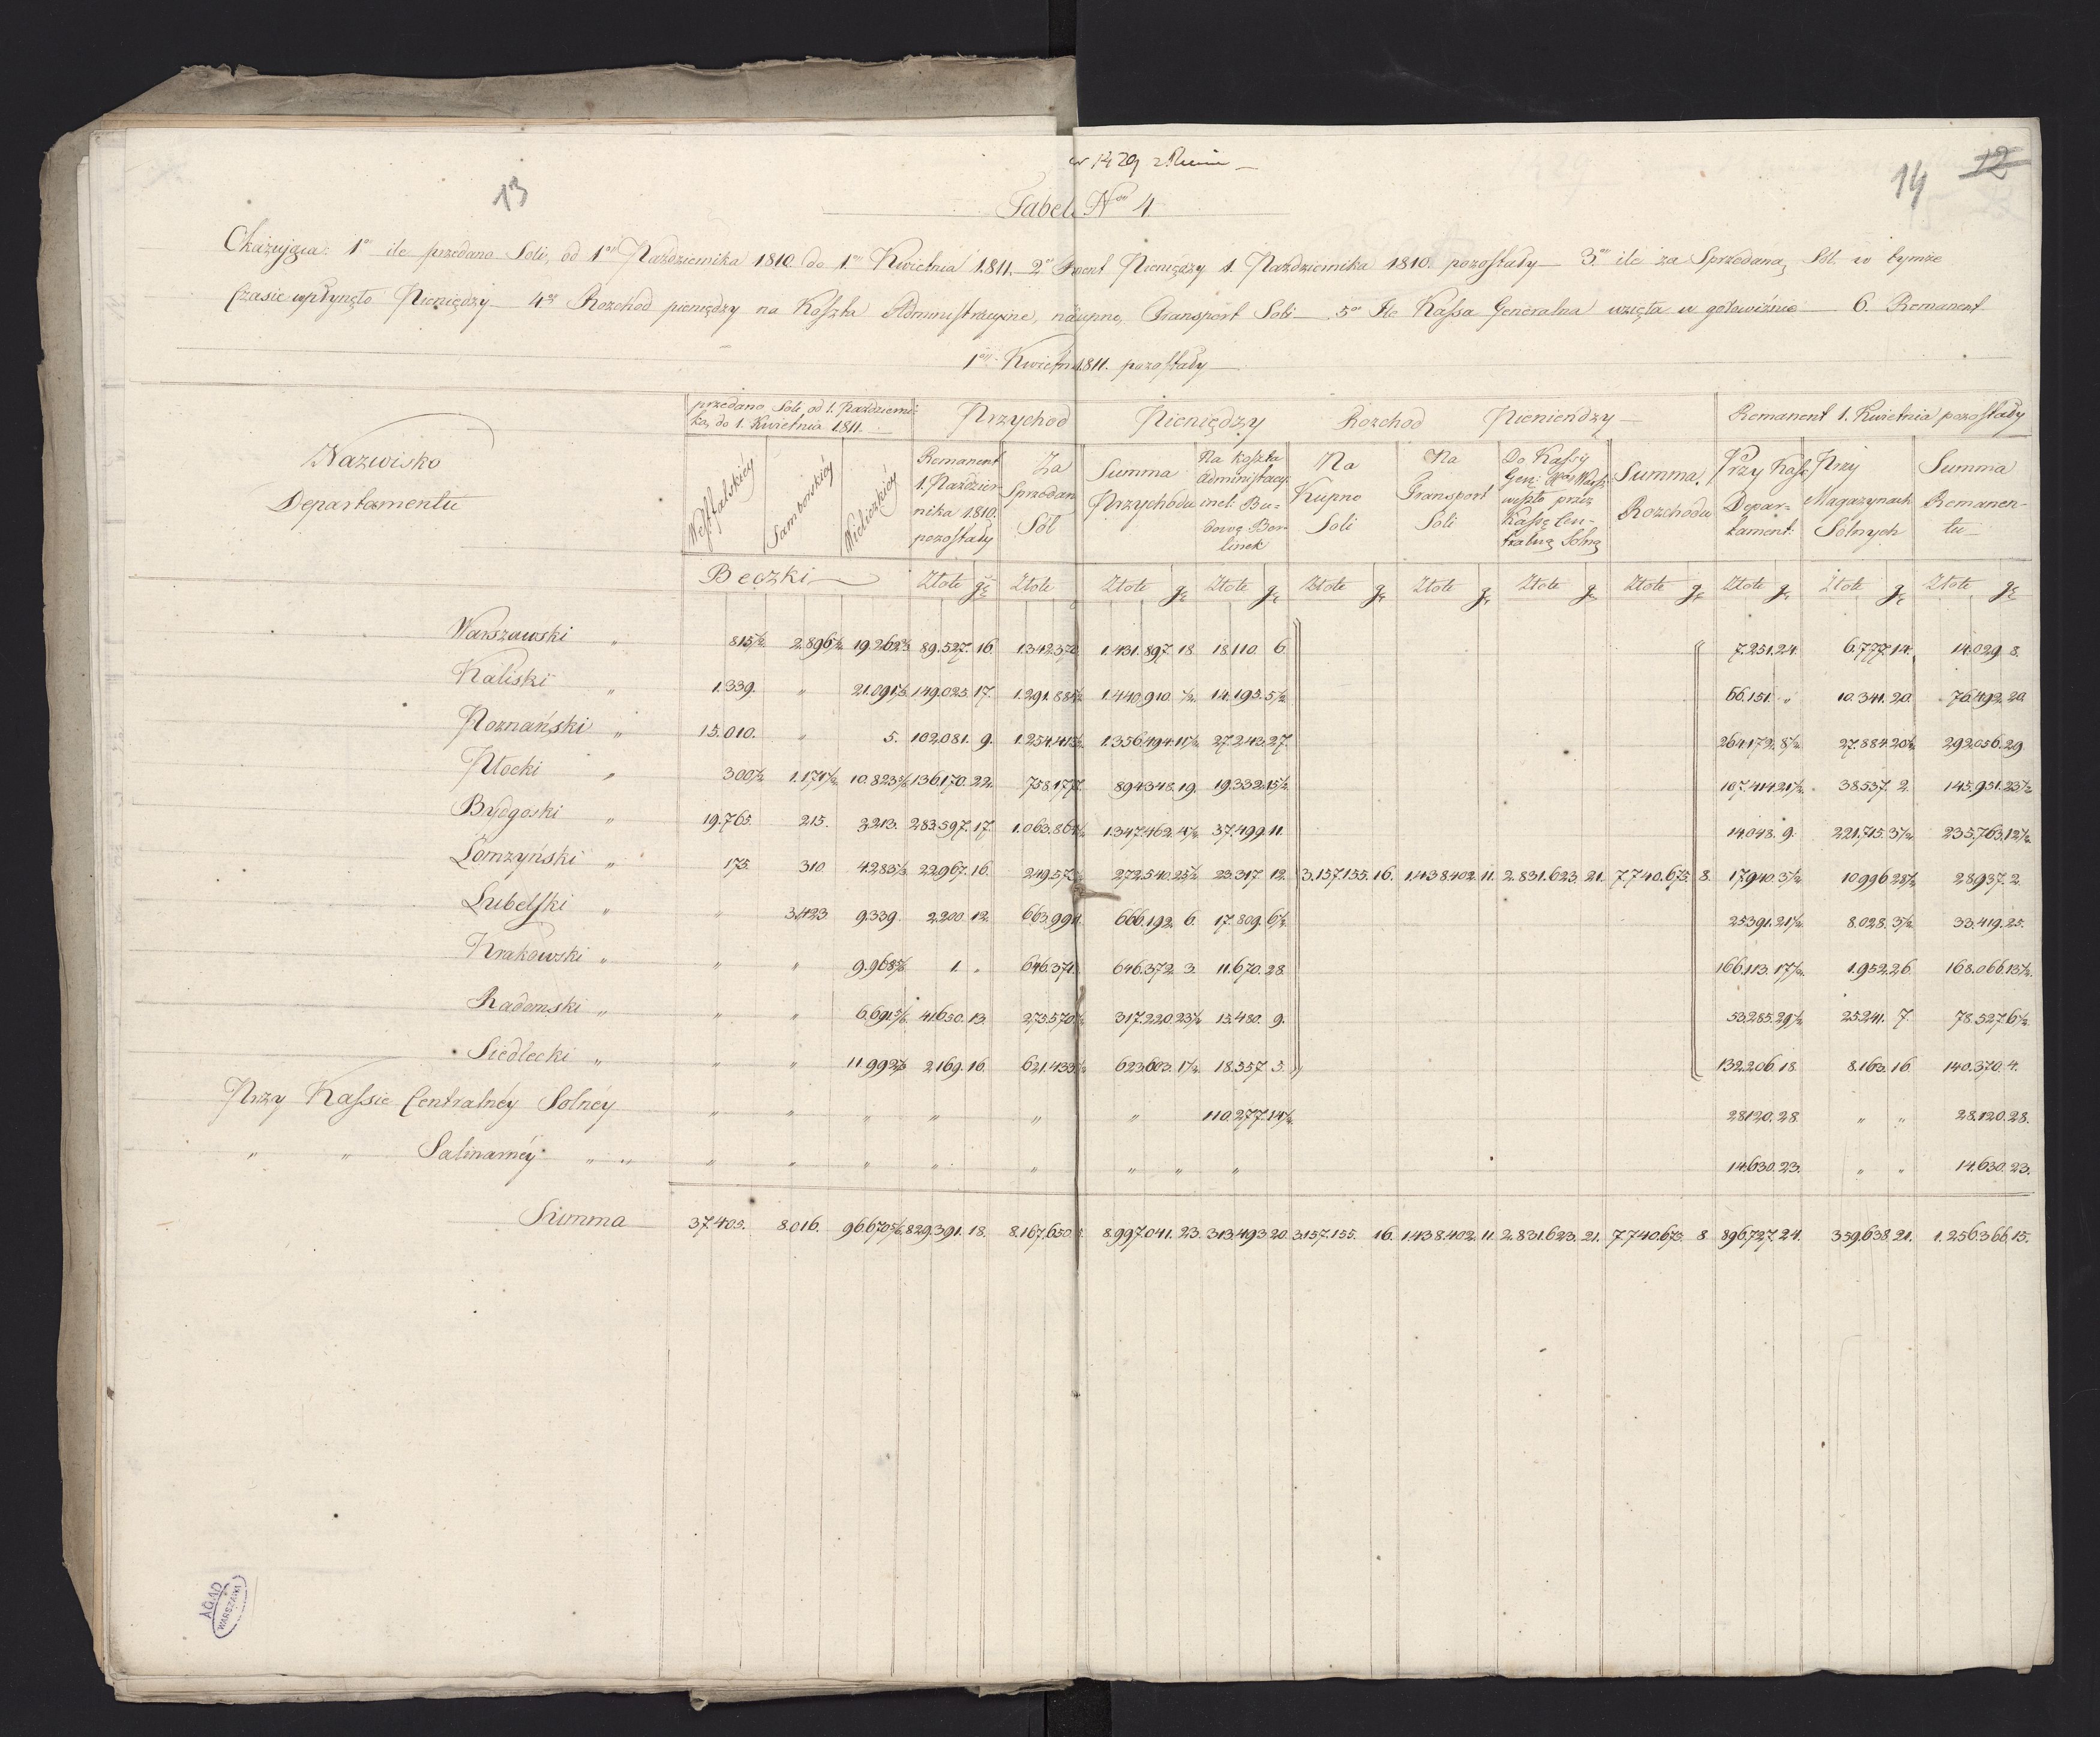 13
14
12
Tabel. Nro 4
Okazująca: 1o ile przedano Soli, od 1o Pazdziernika 1810. do 1o Kwietnia 1811. 2o Pieniędzy 1. Pazdziernika 1810. pozostały 3o ile za Sprzedaną Sól w tymże
Czasie wpłynęło Pieniędzy 4o Rozchod pieniędzy na Koszta Administracyine, Transport Soli 5o Ile Kassa Generalna wzięła w gotowiźnie 6. Remanent
1o Kwietn 1811. pozostały
Nazwisko Departamentu
przedano Soli, od 1. Pazdziernika, do 1. Kwietnia 1811.
Przychod Pieniędzy
Rozchod Pieniendzy
Remanent 1. Kwietnia pozostały
Westfalskiéy
Samborskiéy
Wieliczkiéy
Remanent 1. Pazdziernika 1810. pozostały
Za Sprzedan Sól
Summa Przychodu
Na koszta Administracy: incl: Budowę Berlinek
Na Kupno Soli
Na Transport Soli
Do Kassy Gen: Xwa Warsz: weszło przez Kassę Centralną Solną
Summa Rozchodu
Przy Kass: Departament:
Przy Magazynach Solnych
Summa Remanentu
Beczki Złote gr Złote Złote gr Złote gr Złote gr Złote gr Złote gr Złote gr Złote gr Złote gr Złote gr
Warszawski " 815½ 2.896½ 19.262 89.527. 16. 1.342.370 1.431.897. 18 18.110. 6. 7.251.24. 6.777.14. 14.029. 8.
Kaliski " 1.339. " 21.091 149.025. 17. 1.291.885 1.440.910. ½. 14.195. 5½ 66.151. " 10.341. 20. 76.492. 20.
Poznański " 15.010. " 5. 102.081. 9. 1.254.413 1.356.494.11½ 27.243.27. 264.172. 8½ 27.884.20½ 292.056.29
Płocki " 300½ 1.171½ 10.823 136.170. 22. 758.177. 894.348. 19. 19.332.15½ 107.414.21½. 38.537. 2. 145.951.23½
Bydgoski " 19.765. 215. 3.213. 283.597. 17. 1.063.864 1.347.462. 37.499.11. 14.048. 9. 221.715.3½ 235.763.12½
Łomzyński " 175. 310. 4.285 22.967. 16. 249.573 272.540.25½ 23.317 12. 3.157.155. 16. 1.438.402. 11. 2.831.623. 21. 7.740.673. 8. 17.940.3½ 10.996.28½ 28.937. 2.
Lubelski " " 3.423 9.339. 2.200. 12. 663.991. 666.192. 6. 17.809. 6½ 25.391.21½ 8.028. 3½ 33.419.25.
Krakowski " " " 9.968 1. " 646.371. 646.372. 3. 11.670. 28. 166.113. 17½ 1.952.26. 168.066.13½.
Radomski " " " 6.691 41.650. 13. 275.570 317.220.23½ 15.480. 9. 53.285.29½ 25.241. 7. 78.527.6½
Siedlecki " " " 11.992 2.169. 16. 621.433 623.603. 1½. 18.557. 3. 132.206.18. 8.163. 16. 140.370. 4.
Przy Kassie Centralnéy Solnéy " " " " " " 110.277.14½ 28.120.28. " " 28.120.28.
" " Salinarnéy " " " " " " " " " " 14.630.23. " " 14.630.23.
Summa 37.405. 8.016. 96.670 829.391. 18. 8.167.650. 8.997.041. 23. 313.493.20. 3.157.155. 16. 1.438.402. 11. 2.831.623. 21. 7.740.673. 8. 896.727.24. 359.638.21. 1.256.366.15.
AGAD
WARSZAWA